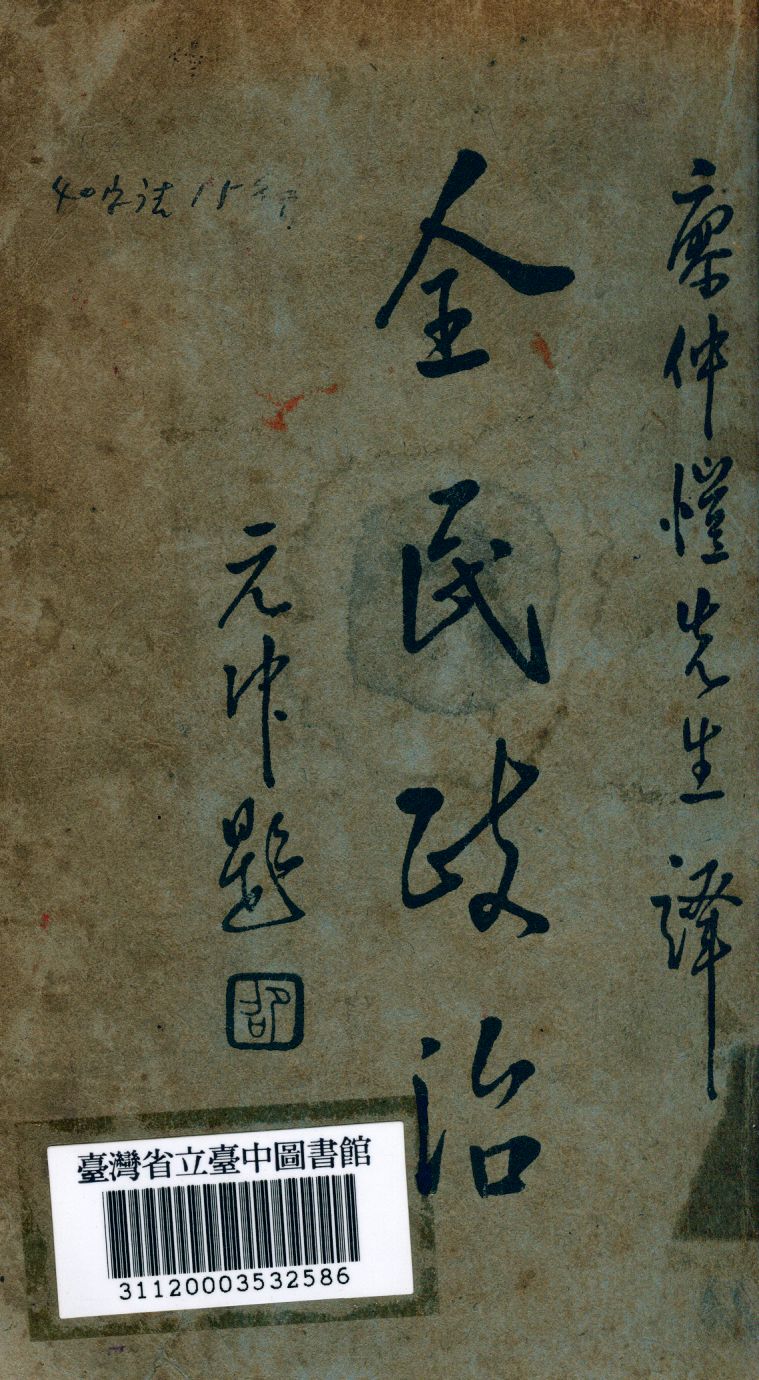 廖仲愷先生譯
全民政治
元冲題
邵
臺灣省立臺中圖書館
31120003532586